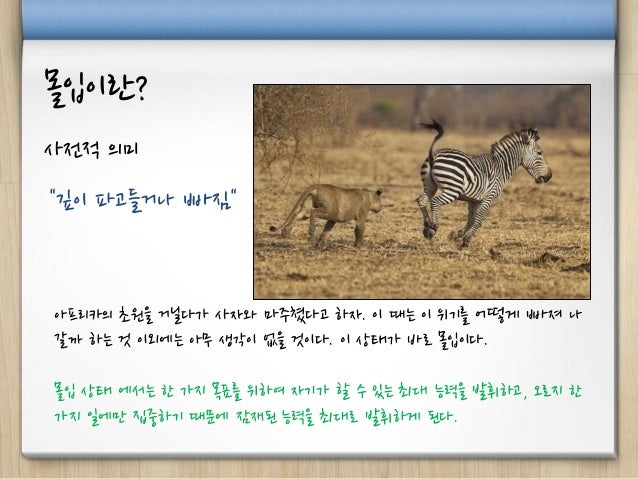 몰입이란?
사전적 의미
"깊이 파고들거나 빠짐"
아프리카의 초원을 거닐다가 사자와 마주쳤다고 하자. 이 때는 이 위기를 어떻게 빠져 나
갈까 하는 것 이외에는 아무 생각이 없을 것이다. 이 상태가 바로 몰입이다.
몰입 상태 에서는 한 가지 목표를 위하여 자기가 할 수 있는 최대 능력을 발휘하고, 오로지 한
가지 일에만 집중하기 때문에 잠재된 능력을 최대로 발휘하게 된다.